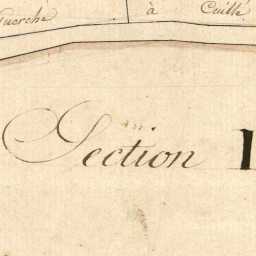 Guerche à Cuillé
Section